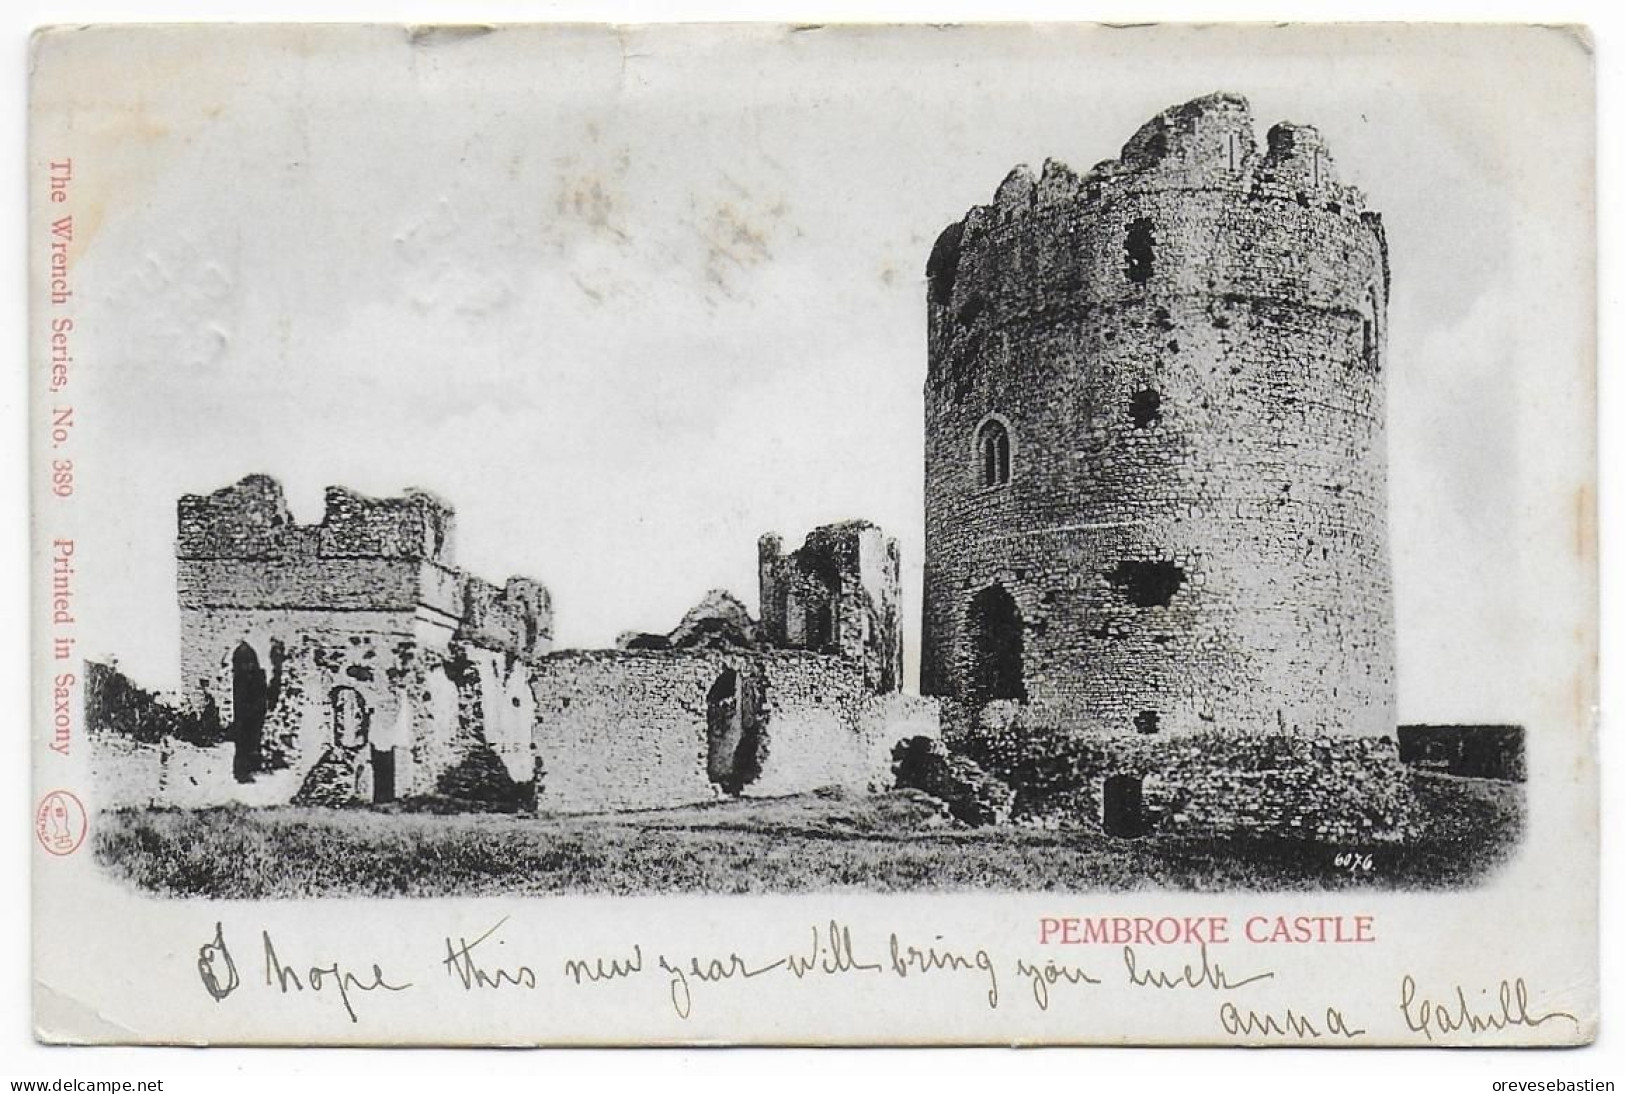 The Wrench Series, No. 389 Printed in Saxony
6076.
PEMBROKE CASTLE
I hope this new year will bring you luck
anna Cahill
www.delcampe.net
orevesebastien